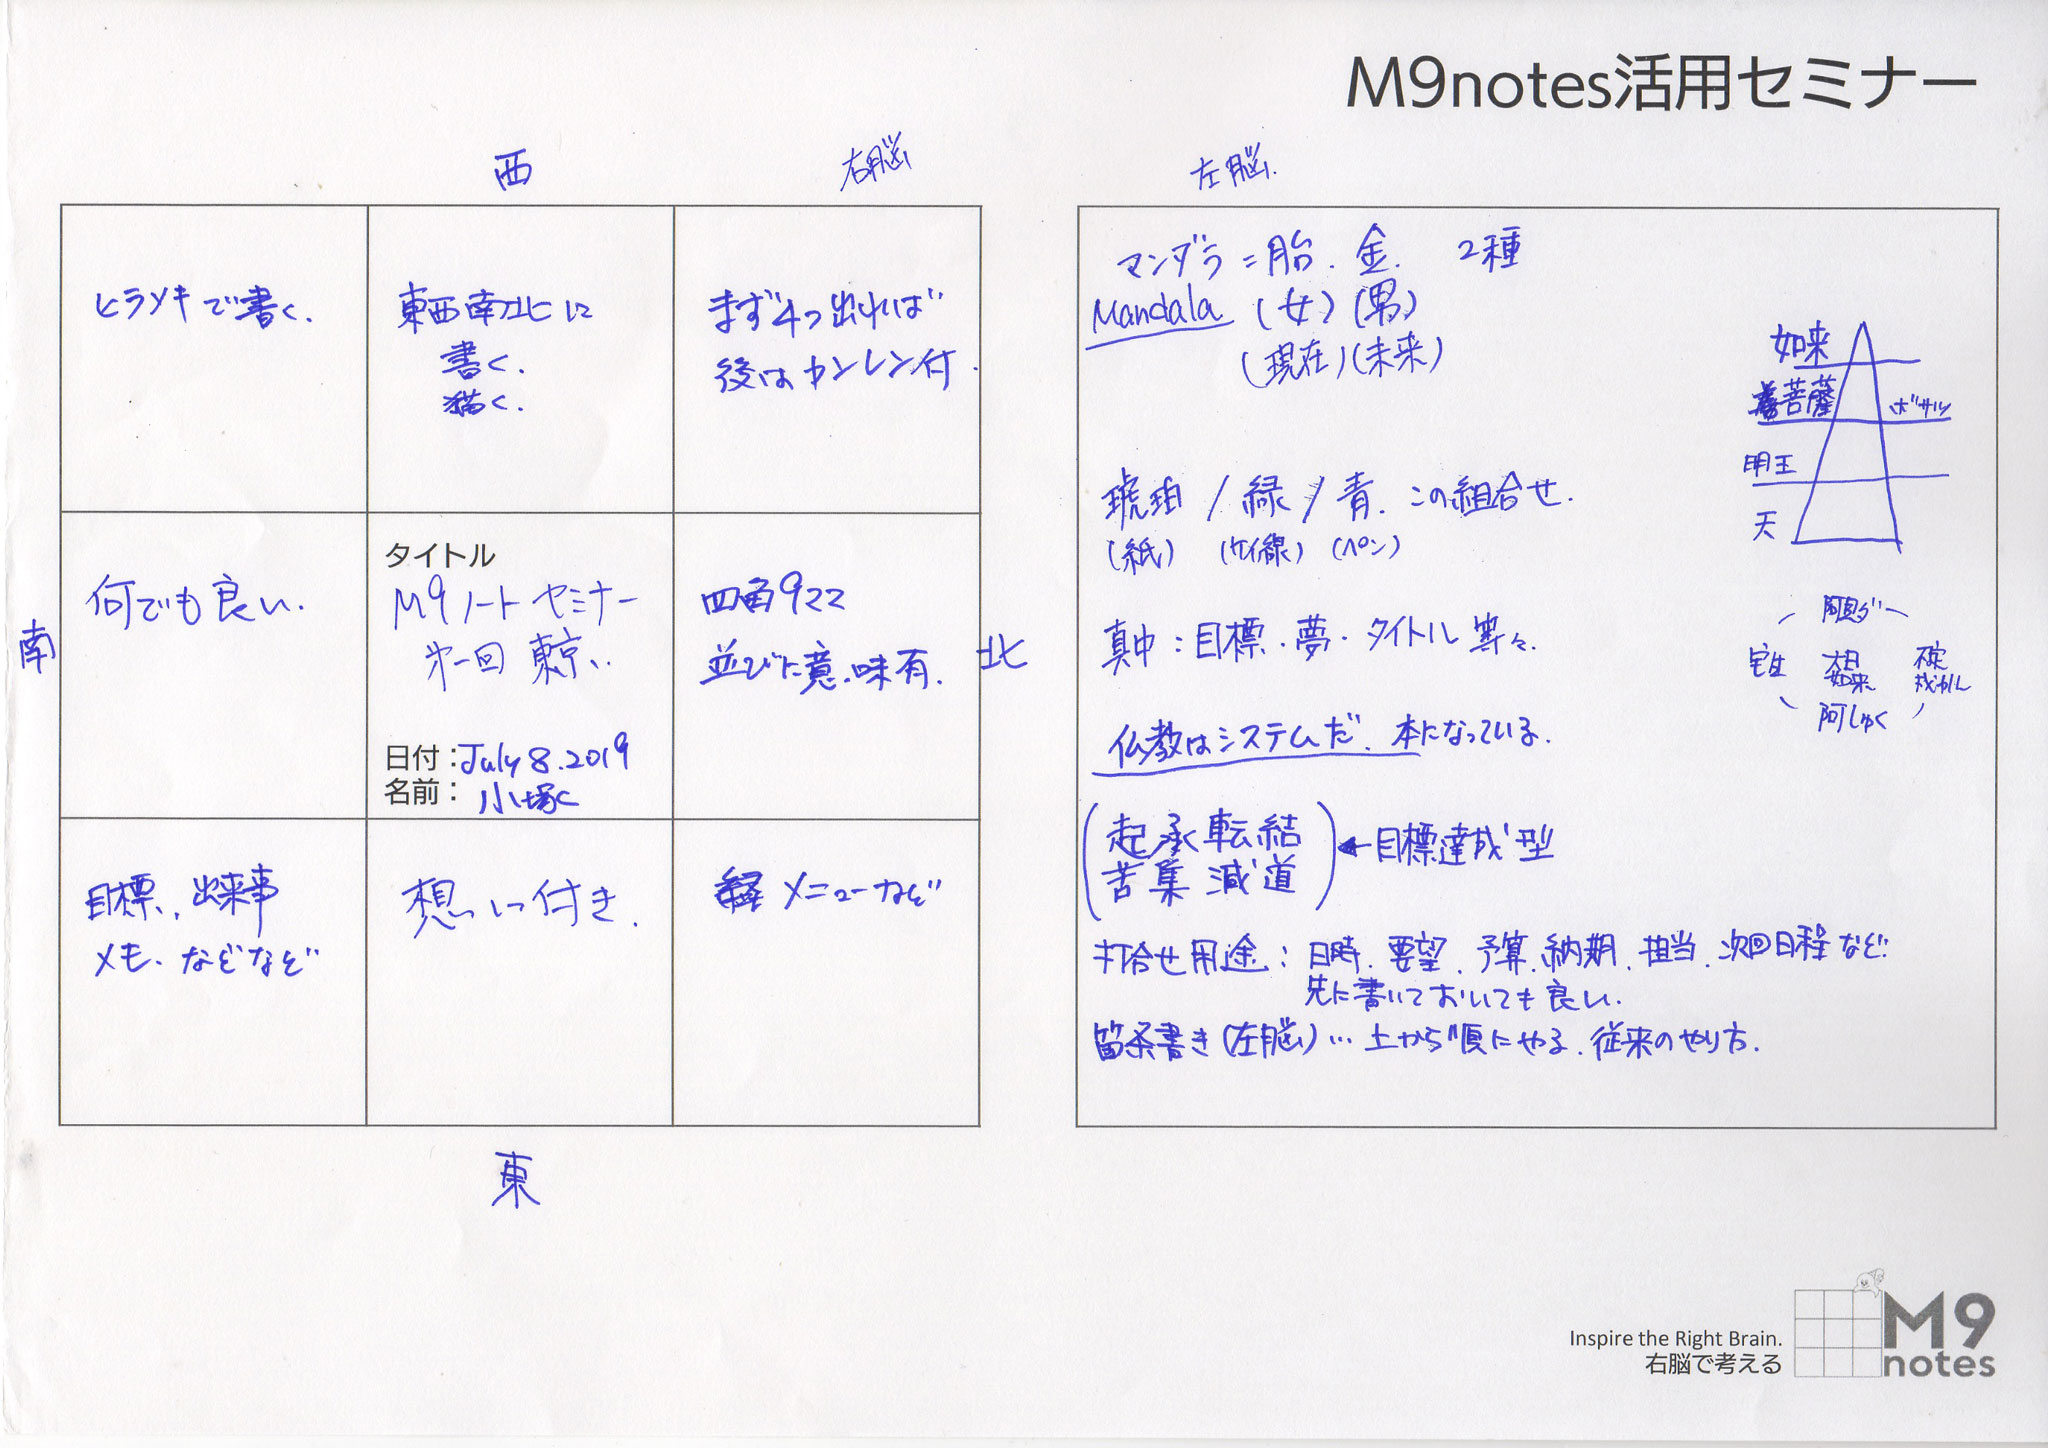 M9notes活用セミナー
西
右脳
左脳
ヒラメキで書く.
東西南北に
書く.
描く.
まず4つ出れば
後はカンレン付.
南
何でも良い.
タイトル
M9ノートセミナー
第一回 東京
日付：July 8.2019
名前：小塚
四角9マス
並びに意味有.
北
目標、出来事
メモ、などなど
想い付き.
メニューなど
東
マンダラ=胎.金. 2種
Mandala (女)(男)
(現在)(未来)
如来
菩薩 ボサツ
明王
天
琥珀/緑/青.この組合せ.
(紙) (ケイ線) (ペン)
真中：目標・夢・タイトル等々.
阿弥ダ
宝生
大日如来
不空
阿しゅく
仏教はシステムだ.本になっている.
起承転結
苦集減道
←目標達成型
打合せ用途：日時、要望、予算、納期、担当、次回日程など.
先に書いておいても良い.
箇条書き(左脳)…上から順にやる.従来のやり方.
Inspire the Right Brain.
右脳で考える
M9
notes